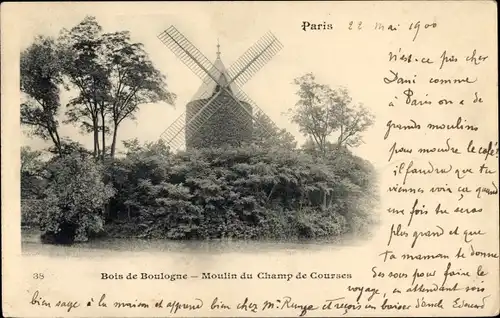 Paris 22 mai 1900
N'est-ce pas cher
Dani comme
à Paris on a de
grands moulins
pour moudre le café.
il faudra que tu
viennes voir cela
une fois tu seras
plus grand et que
ta maman te donne
des sous pour faire le
voyage, en attendant sois
bien sage à la maison et apprend bien chez Mr et reçois en baiser d'oncle Edouard
38 Bois de Boulogne - Moulin du Champ de Courses